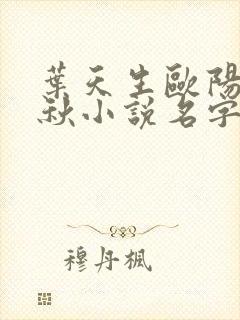 葉天生歐陽
秋小說名字
穆丹楓